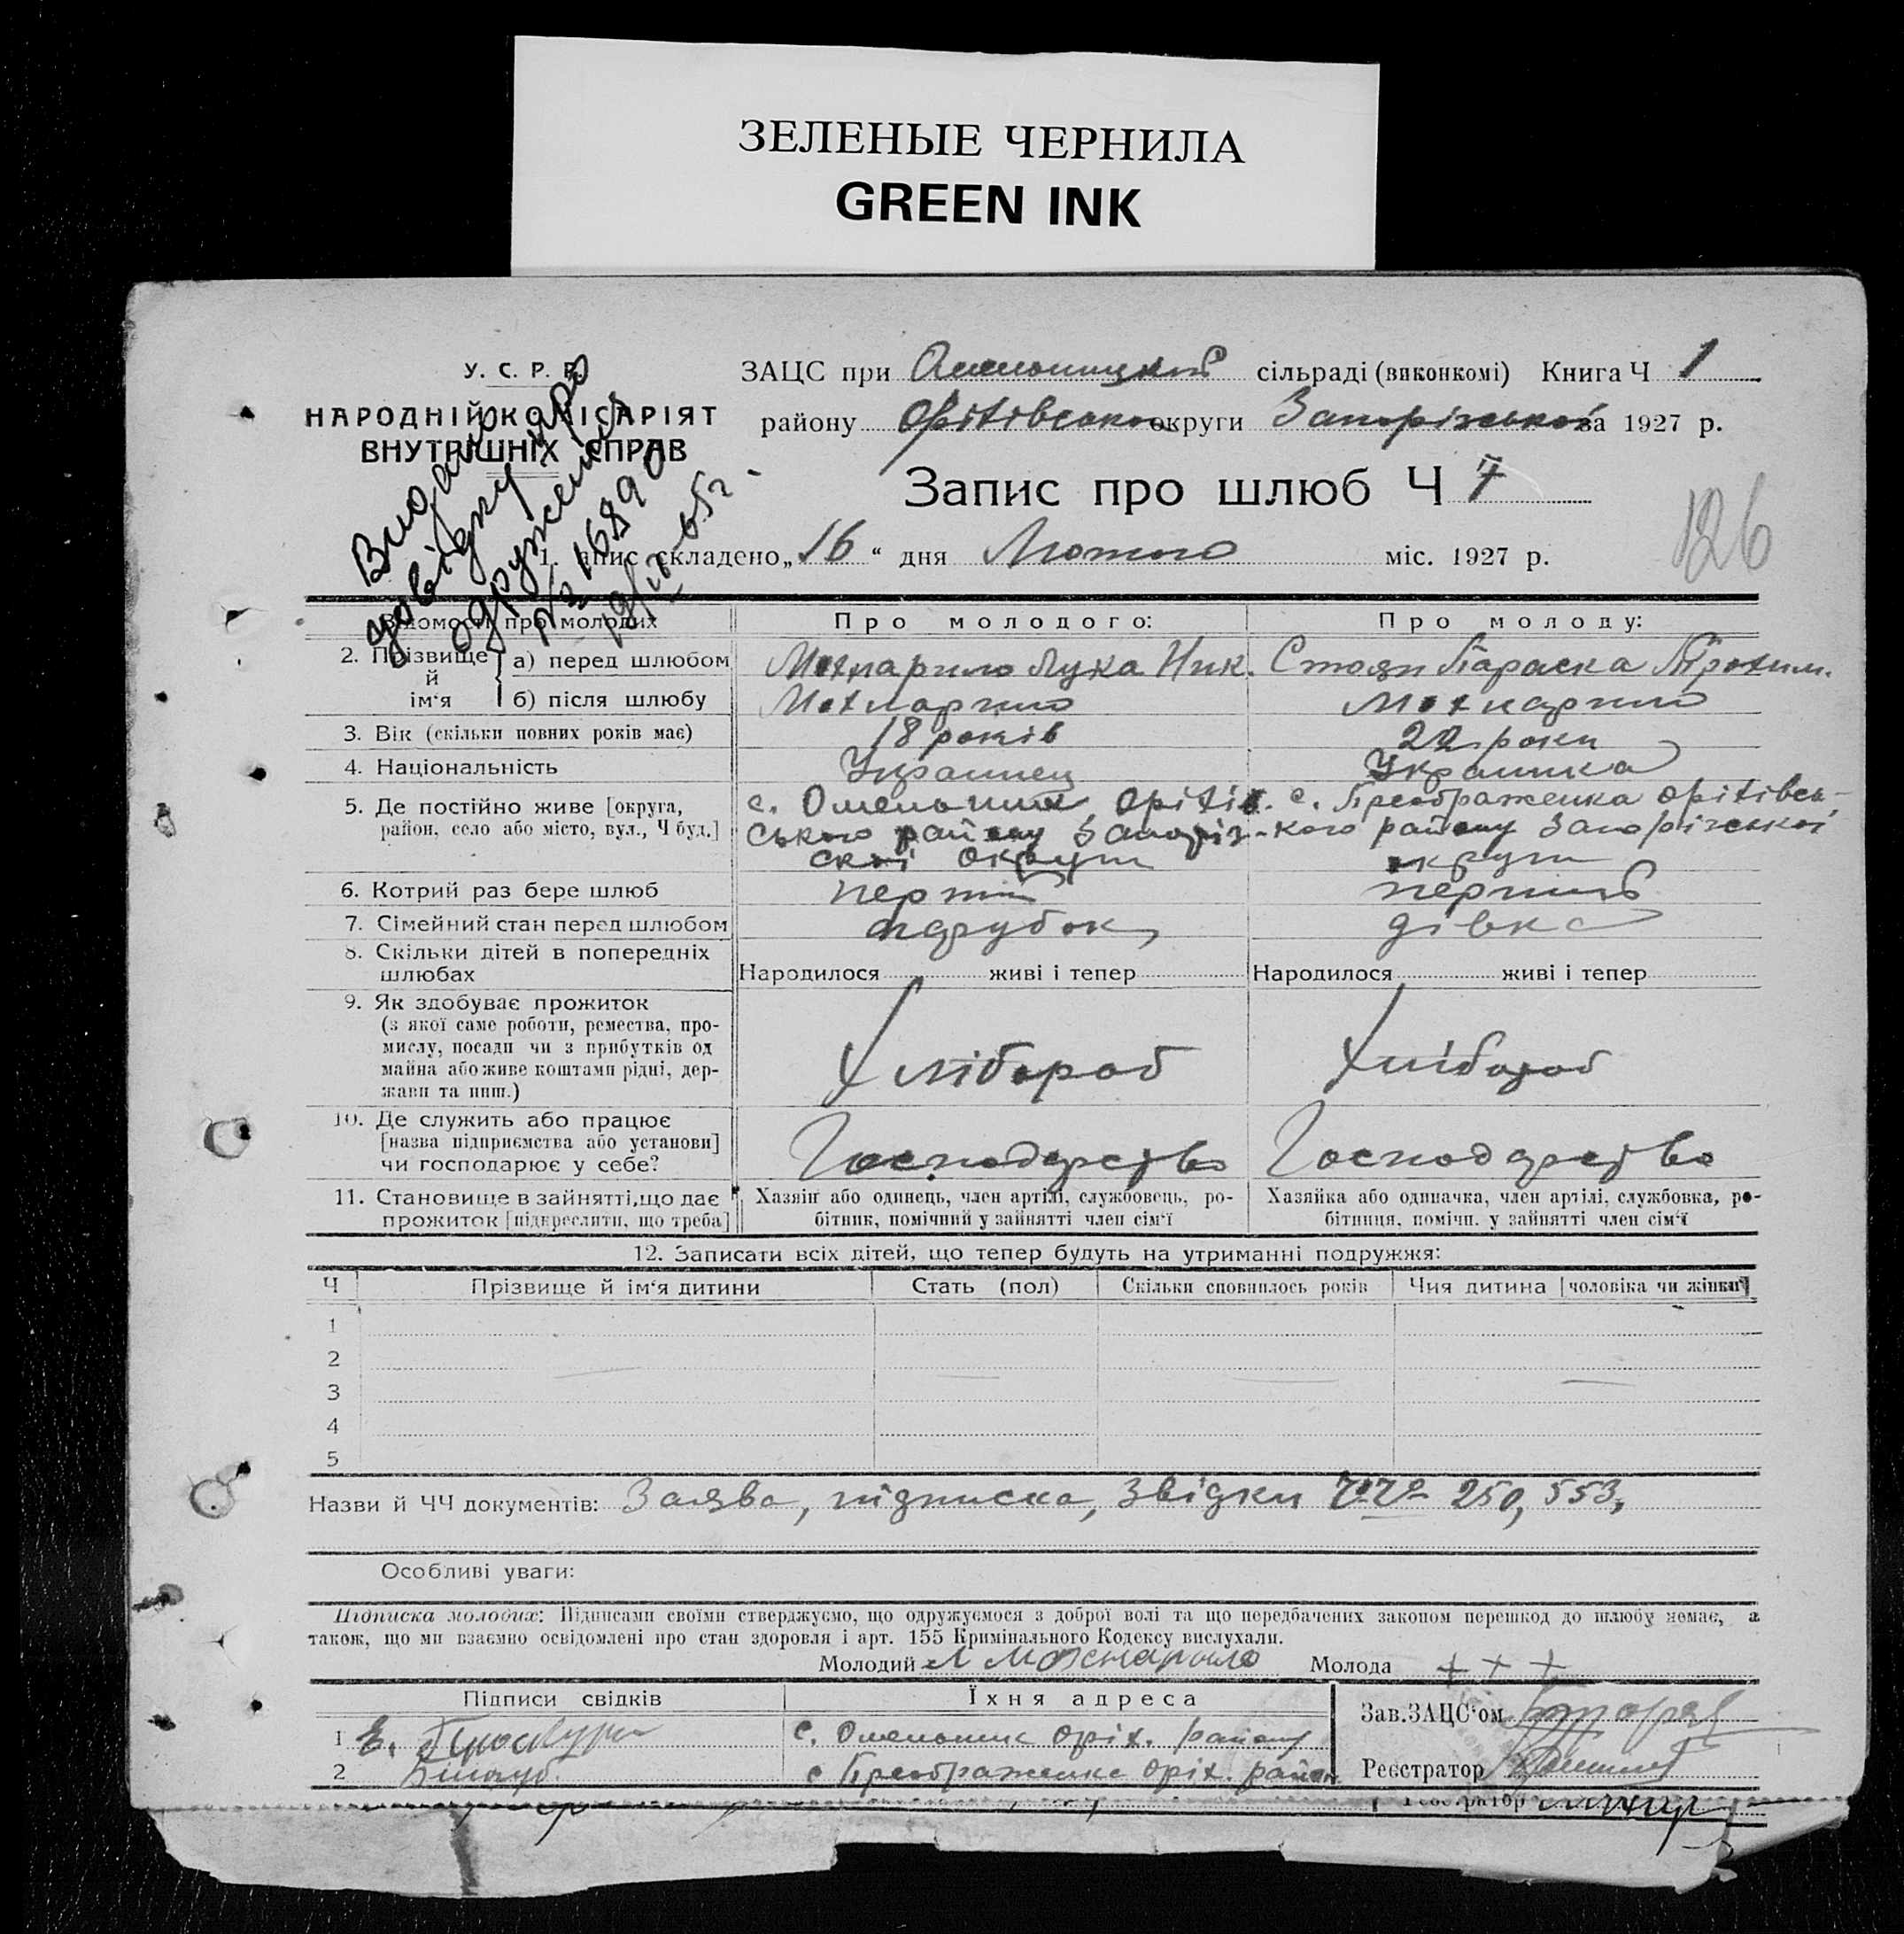 ЗЕЛЕНЫЕ ЧЕРНИЛА
GREEN INK
У. С. Р. Р.
НАРОДНІЙ КОМІСАРІЯТ
ВНУТРІШНІХ СПРАВ
Видана
довідку про
одруження
№ 16890
ЗАЦС при сільраді (виконкомі) Книга Ч 1
району Оріхівського округи Запорізької за 1927 р.
Запис про шлюб Ч 7
126
1. Запис складено „16“ дня Лютого міс. 1927 р.
Відомости про молодих
Про молодого:
Про молоду:
2. Прізвище й ім‘я
а) перед шлюбом
Лука Ник.
Стоян Параска Трохим.
б) після шлюбу
3. Вік (скільки повних років має)
18 років
22 роки
4. Національність
Украинец
Украинка
5. Де постійно живе [округа,
район, село або місто, вул., Ч буд.]
с. Омельник Оріхів
ського району Запоріз
скої округи
с. Преображенка Оріхівсь-
кого району Запорізської
округи
6. Котрий раз бере шлюб
перший
перший
7. Сімейний стан перед шлюбом
парубок
дівка
8. Скільки дітей в попередніх
шлюбах
Народилося живі і тепер
Народилося живі і тепер
9. Як здобуває прожиток
(з якої саме роботи, ремества, про-
мислу, посади чи з прибутків од
майна або живе коштами рідні, дер-
жави та инш.)
Хлібороб
Хлібороб
10. Де служить або працює
[назва підприємства або установи]
чи господарює у себе?
Господарство
Господарство
11. Становище в зайнятті, що дає
прожиток [підкреслити, що треба]
Хазяїн або одинець, член артілі, службовець, ро-
бітник, помічний у зайнятті член сім‘ї
Хазяйка або одиначка, член артілі, службовка, ро-
бітниця, помічн. у зайнятті член сім‘ї
12. Записати всіх дітей, що тепер будуть на утриманні подружжя:
Ч Прізвище й ім‘я дитини Стать (пол) Скільки сповнилось років Чия дитина [чоловіка чи жінки]
1
2
3
4
5
Назви й ЧЧ документів: Заява, підписка, звідки 250, 553,
Особливі уваги:
Підписка молодих: Підписами своїми стверджуємо, що одружуємося з доброї волі та що передбачених законом перешкод до шлюбу немає, а
також, що ми взаємно освідомлені про стан здоровля і арт. 155 Кримінального Кодексу вислухали.
Молодий Молода + + +
Підписи свідків Їхня адреса
Зав. ЗАЦС‘ом
1 с. Омельник Оріх. району
2 с Преображенка Оріх. район.
Реєстратор
Реєстратор